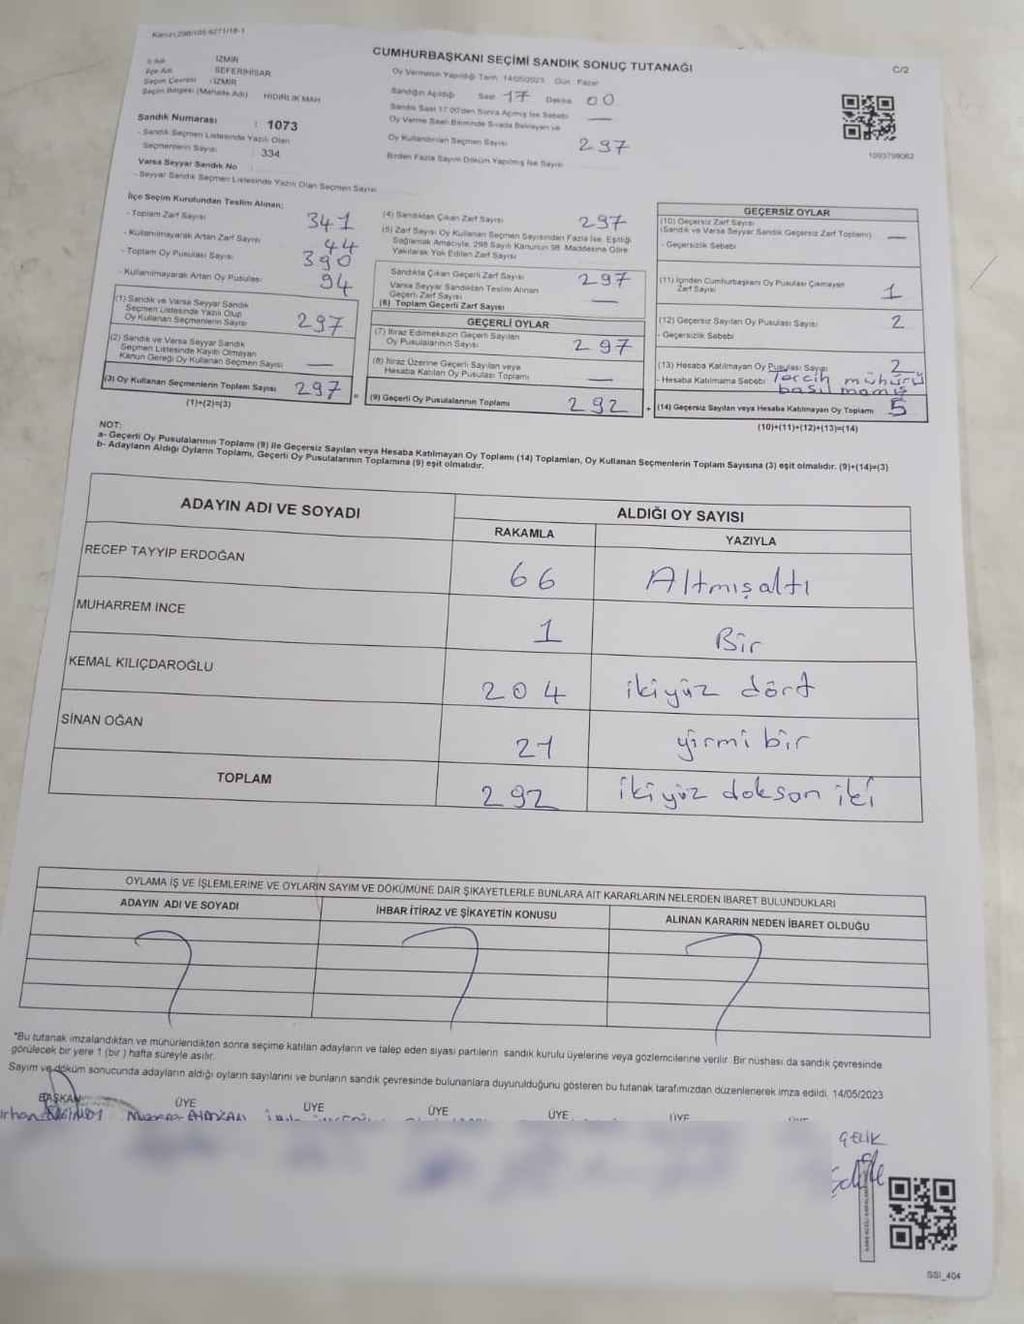 CUMHURBAŞKANI SEÇİMİ SANDIK SONUÇ TUTANAĞI
C/2
İl Adı İZMİR
İlçe Adı SEFERİHİSAR
Seçim Çevresi İZMİR
Seçim Bölgesi (Mahalle Adı) HIDIRLIK MAH
Sandık Numarası : 1073
- Sandık Seçmen Listesinde Yazılı Olan
Seçmenlerin Sayısı 334
Varsa Seyyar Sandık No
- Seyyar Sandık Seçmen Listesinde Yazılı Olan Seçmen Sayısı
Oy Vermenin Yapıldığı Tarih 14/05/2023 Gün : Pazar
Sandığın Açıldığı Saat 17 Dakika 00
Sandık Saat 17:00'den Sonra Açılmış İse Sebebi
Oy Verme Saati Bitiminde Sırada Bekleyen ve
Oy Kullandırılan Seçmen Sayısı 297
Birden Fazla Sayım Döküm Yapılmış İse Sayısı
1093799062
İlçe Seçim Kurulundan Teslim Alınan;
- Toplam Zarf Sayısı 341
- Kullanılmayarak Artan Zarf Sayısı 44
- Toplam Oy Pusulası Sayısı 390
- Kullanılmayarak Artan Oy Pusulası 94
(1) Sandık ve Varsa Seyyar Sandık
Seçmen Listesinde Yazılı Olup
Oy Kullanan Seçmenlerin Sayısı 297
(2) Sandık ve Varsa Seyyar Sandık
Seçmen Listesinde Kayıtlı Olmayan
Kanun Gereği Oy Kullanan Seçmen Sayısı —
(3) Oy Kullanan Seçmenlerin Toplam Sayısı 297
(1)+(2)=(3)
(4) Sandıktan Çıkan Zarf Sayısı 297
(5) Zarf Sayısı Oy Kullanan Seçmen Sayısından Fazla İse, Eşitliği
Sağlamak Amacıyla, 298 Sayılı Kanunun 98. Maddesine Göre
Yakılarak Yok Edilen Zarf Sayısı
Sandıkta Çıkan Geçerli Zarf Sayısı 297
Varsa Seyyar Sandıktan Teslim Alınan
Geçerli Zarf Sayısı —
(6) Toplam Geçerli Zarf Sayısı
GEÇERLİ OYLAR
(7) İtiraz Edilmeksizin Geçerli Sayılan
Oy Pusulalarının Sayısı 297
(8) İtiraz Üzerine Geçerli Sayılan veya
Hesaba Katılan Oy Pusulası Toplamı —
(9) Geçerli Oy Pusulalarının Toplamı 292
GEÇERSİZ OYLAR
(10) Geçersiz Zarf Sayısı
(Sandık ve Varsa Seyyar Sandık Geçersiz Zarf Toplamı) —
- Geçersizlik Sebebi
(11) İçinden Cumhurbaşkanı Oy Pusulası Çıkmayan
Zarf Sayısı 1
(12) Geçersiz Sayılan Oy Pusulası Sayısı 2
- Geçersizlik Sebebi
(13) Hesaba Katılmayan Oy Pusulası Sayısı 2
- Hesaba Katılmama Sebebi Tercih mühürü
basılmamış
(14) Geçersiz Sayılan veya Hesaba Katılmayan Oy Toplamı 5
(10)+(11)+(12)+(13)=(14)
NOT:
a- Geçerli Oy Pusulalarının Toplamı (9) ile Geçersiz Sayılan veya Hesaba Katılmayan Oy Toplamı (14) Toplamları, Oy Kullanan Seçmenlerin Toplam Sayısına (3) eşit olmalıdır. (9)+(14)=(3)
b- Adayların Aldığı Oyların Toplamı, Geçerli Oy Pusulalarının Toplamına (9) eşit olmalıdır.
ADAYIN ADI VE SOYADI
ALDIĞI OY SAYISI
RAKAMLA YAZIYLA
RECEP TAYYİP ERDOĞAN 66 Altmışaltı
MUHARREM İNCE 1 Bir
KEMAL KILIÇDAROĞLU 204 ikiyüz dört
SİNAN OĞAN 21 yirmi bir
TOPLAM 292 ikiyüz doksan iki
OYLAMA İŞ VE İŞLEMLERİNE VE OYLARIN SAYIM VE DÖKÜMÜNE DAİR ŞİKAYETLERLE BUNLARA AİT KARARLARIN NELERDEN İBARET BULUNDUKLARI
ADAYIN ADI VE SOYADI İHBAR İTİRAZ VE ŞİKAYETİN KONUSU ALINAN KARARIN NEDEN İBARET OLDUĞU
*Bu tutanak imzalandıktan ve mühürlendikten sonra seçime katılan adayların ve talep eden siyasi partilerin sandık kurulu üyelerine veya gözlemcilerine verilir. Bir nüshası da sandık çevresinde
görülecek bir yere 1 (bir) hafta süreyle asılır.
Sayım ve döküm sonucunda adayların aldığı oyların sayılarını ve bunların sandık çevresinde bulunanlara duyurulduğunu gösteren bu tutanak tarafımızdan düzenlenerek imza edildi. 14/05/2023
BAŞKAN ÜYE ÜYE ÜYE ÜYE ÜYE
ÇELİK
SSI_404